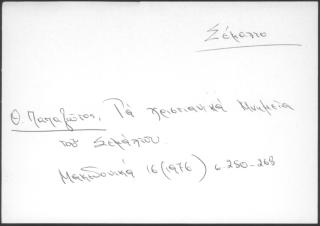 Σέμαλτο
Θ. Παπαζώτος, Τά χριστιανικά Μνημεῖα
τοῦ Σεμάλτου.
Μακεδονικά 16 (1976) σ. 250-268